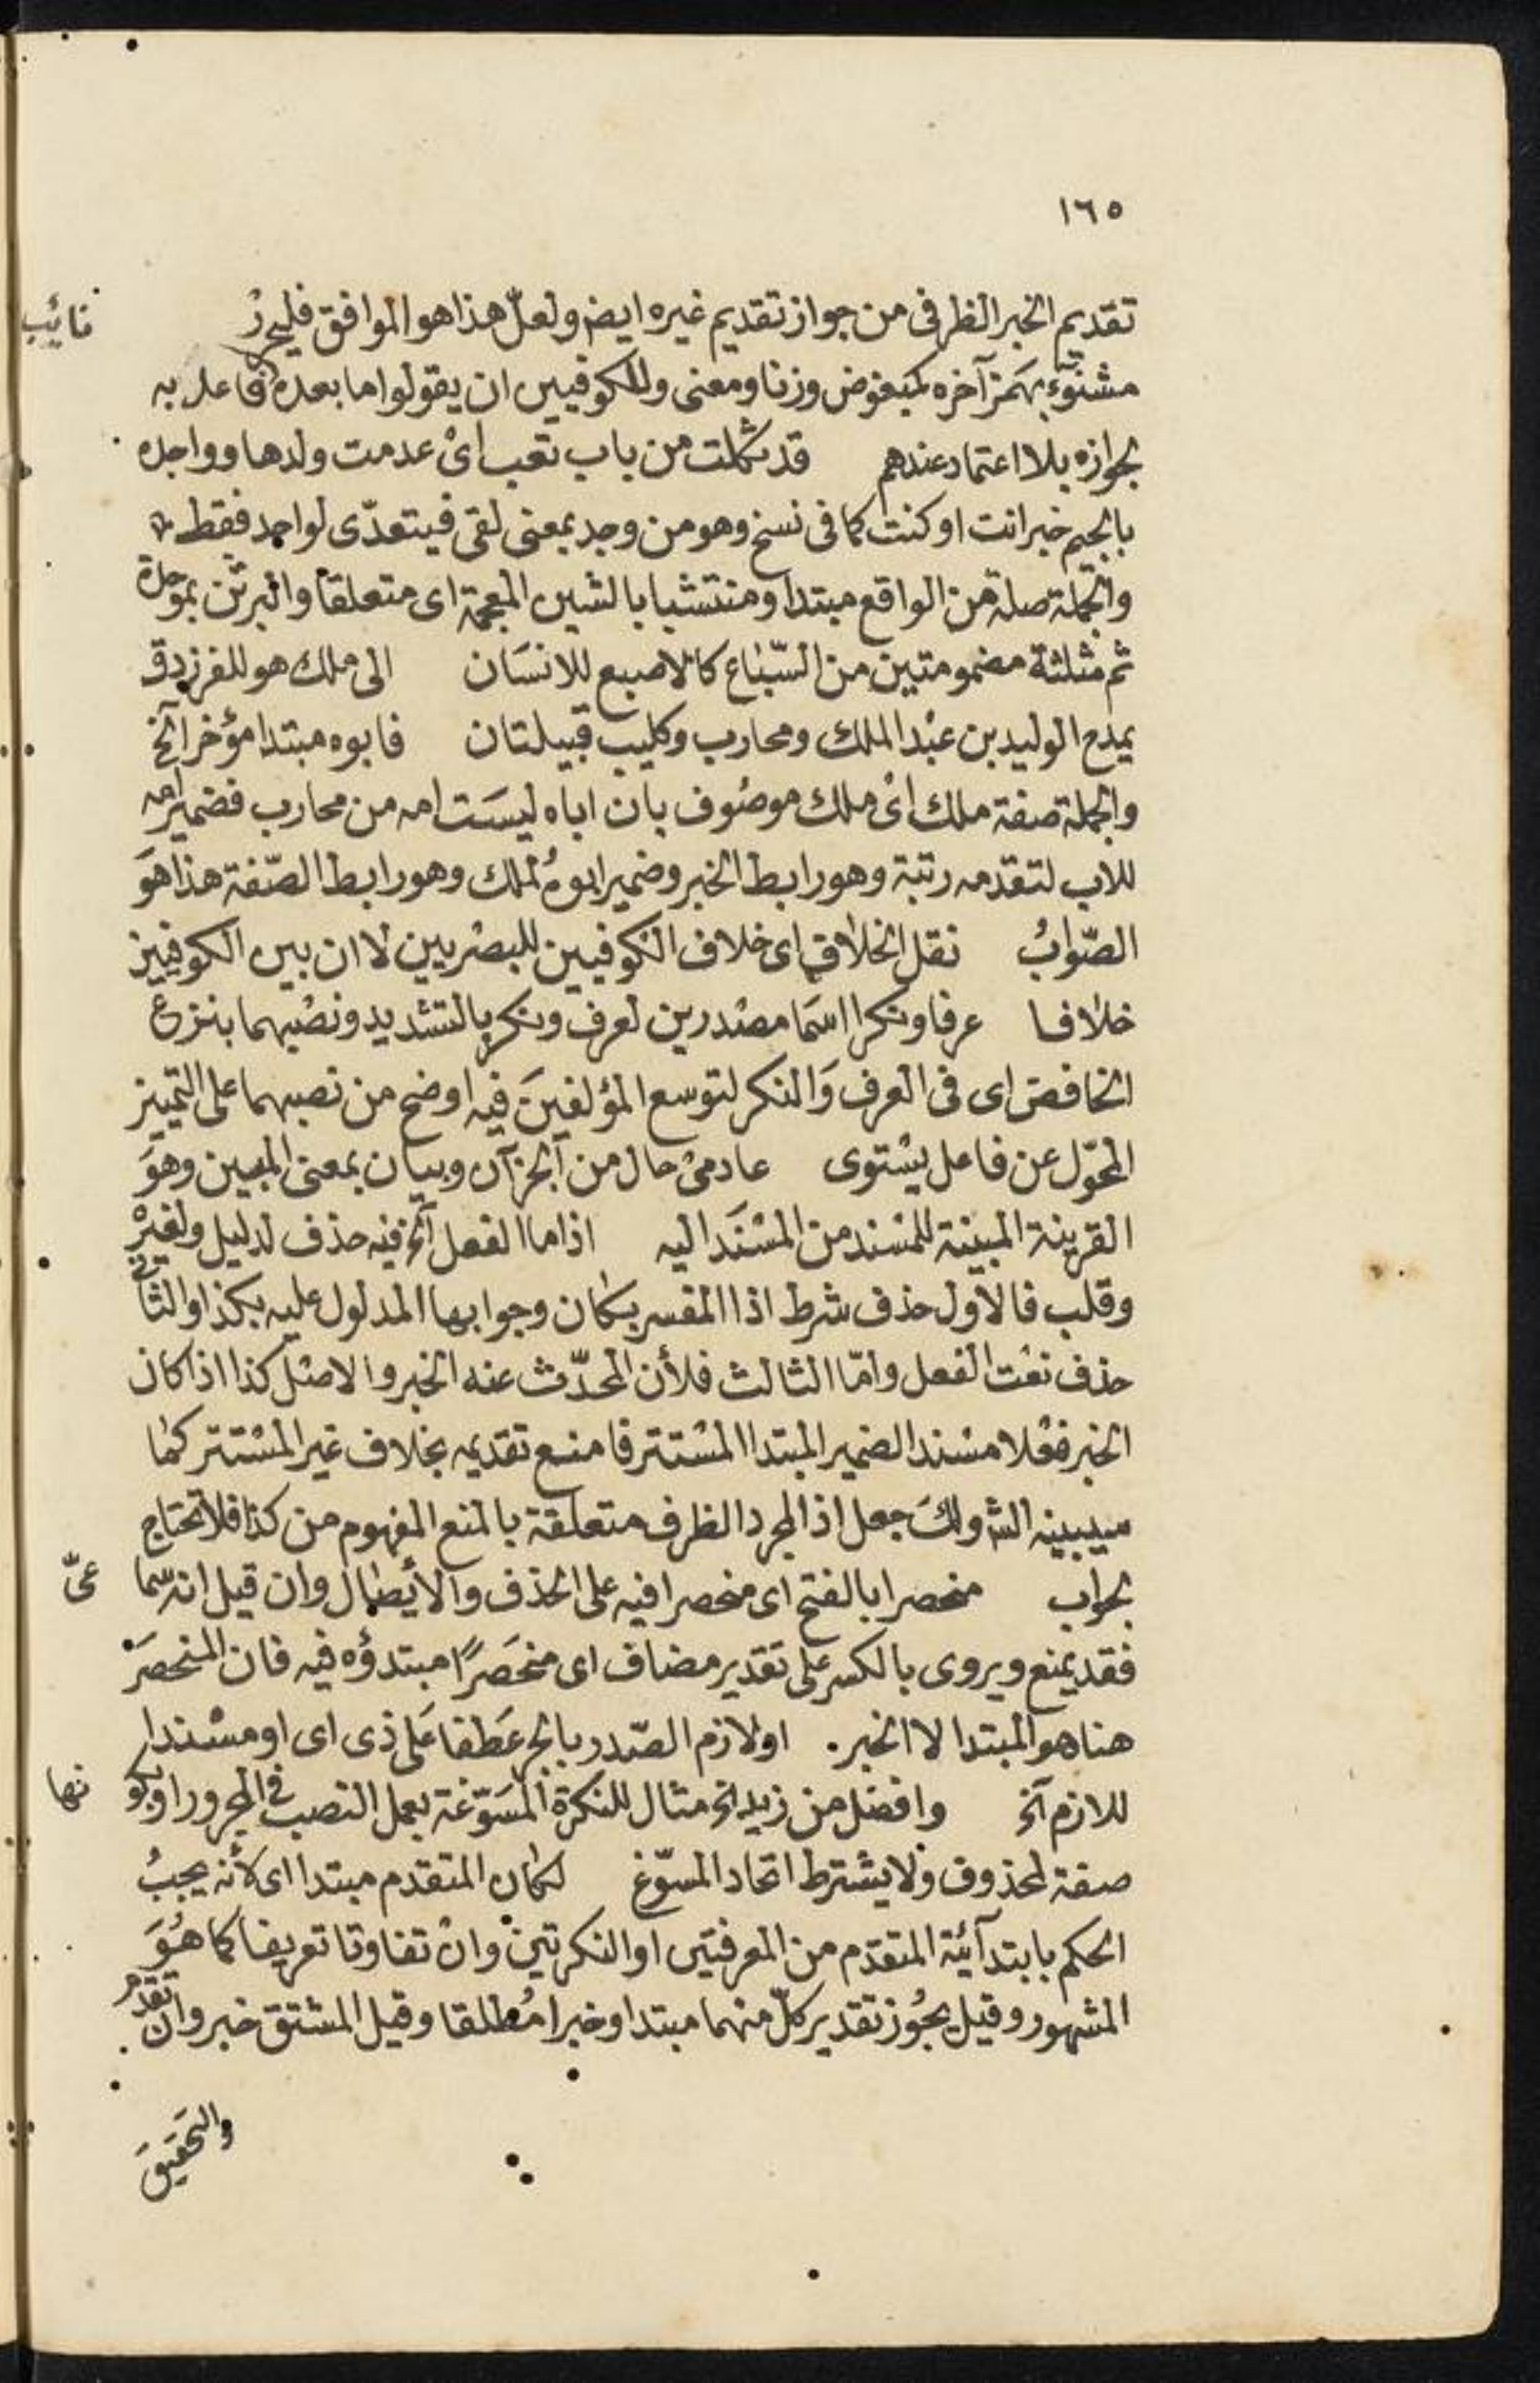 ١٦٥
تقديم الخبر الظرفى من جواز تقديم غيره ايضا ولعلّ هذا هو الموافق فليحرّر
مشنوّء بهمز آخره كمبغوض وزنا ومعنى وللكوفيين ان يقولوا ما بعده فاعل به
نائب
لجوازه بلا اعتماد عندهم قد ثكلت من باب تعب اىْ عدمت ولدها وواجده
بالجيم خبر انت او كنت كما فى نسخ وهو من وجد بمعنى لقى فيتعدّى لواحد فقط
والجملة صلة من الواقع مبتدا ومنتشبا بالشين المعجمة اى متعلقا والبرثن بموحدة
ثم مثلثة مضمومتين من السّباع كالاصبع للانسَان الى ملك هو للفرزدق
يمدح الوليد بن عبْد الملك ومحارب وكليب قبيلتان فابوه مبتدا مؤخر آلخ
والجملة صفة ملك اىْ ملك موصُوف بان اباه ليسَت امه من محارب فضمير امه
للاب لتقدمه رتبة وهو رابط الخبر وضمير ابوهُ لملك وهو رابط الصّفة هذا هوَ
الصّوابُ نقل الخلاف اى خلاف الكوفيين للبصْريين لا ان بين الكوفيين
خلافا عرفا ونكرا اسمَا مصْدرين لعرف ونكر بالتشديد ونصْبهما بنزع
الخافض اى فى العرف وَالنكر لتوسع المؤلفينَ فيه اوضح من نصبهما على التمييز
المحوّل عن فاعل يسْتوى عادمىْ حال من آلجزآن وبيان بمعنى المبين وهوَ
القرينة المبينة للمسْند من المسْنَد اليه اذا ما الفعل آلخ فيه حذف لدليل ولغيرْه
وقلب فالاول حذف شرط اذا المفسر بكان وجوابها المدلول عليه بكذا والثانى
حذف نعْت الفعل وامّا الثالث فلأن المحدّث عنه الخبر والاصْل كذا اذا كان
الخبر فعْلا مسْندا لضمير المبتدا المسْتتر فامنع تقديمه بخلاف غير المسْتتر كما
سيبينه الش ولكَ جعل اذا لمجرد الظرف متعلقة بالمنع المفهوم من كذا فلا تحتاج
لجواب منحصرا بالفتح اى منحصرا فيه على الحذف والأيصَال وان قيل انه سما
عىّ
فقد يمنع ويروى بالكسر على تقدير مضاف اى منحَصرًا مبتدؤه فيه فان المنحصرَ
هنا هو المبتدا لا الخبر. او لازم الصّدر بالجر عَطفا عَلى ذى اى او مسْندا
للازم آلخ وافضل من زيد الخ مثال للنكرة المسَوّغة بعمل النصب فى المجرور او بكو
نها
صفة لمحذوف ولا يشترط اتحاد المسوّغ لكان المتقدم مبتدا اى لأنه يجبُ
الحكم بابتدآئيّة المتقدّم من المعرفتين او النكرتين وانْ تفاوتا تعريفا كما هُوَ
المشهور وقيل يجُوز تقدير كلّ منهما مبتدا وخبرا مُطلقا وقيل المشتق خبر وان تقدم
والتحَقيقَ